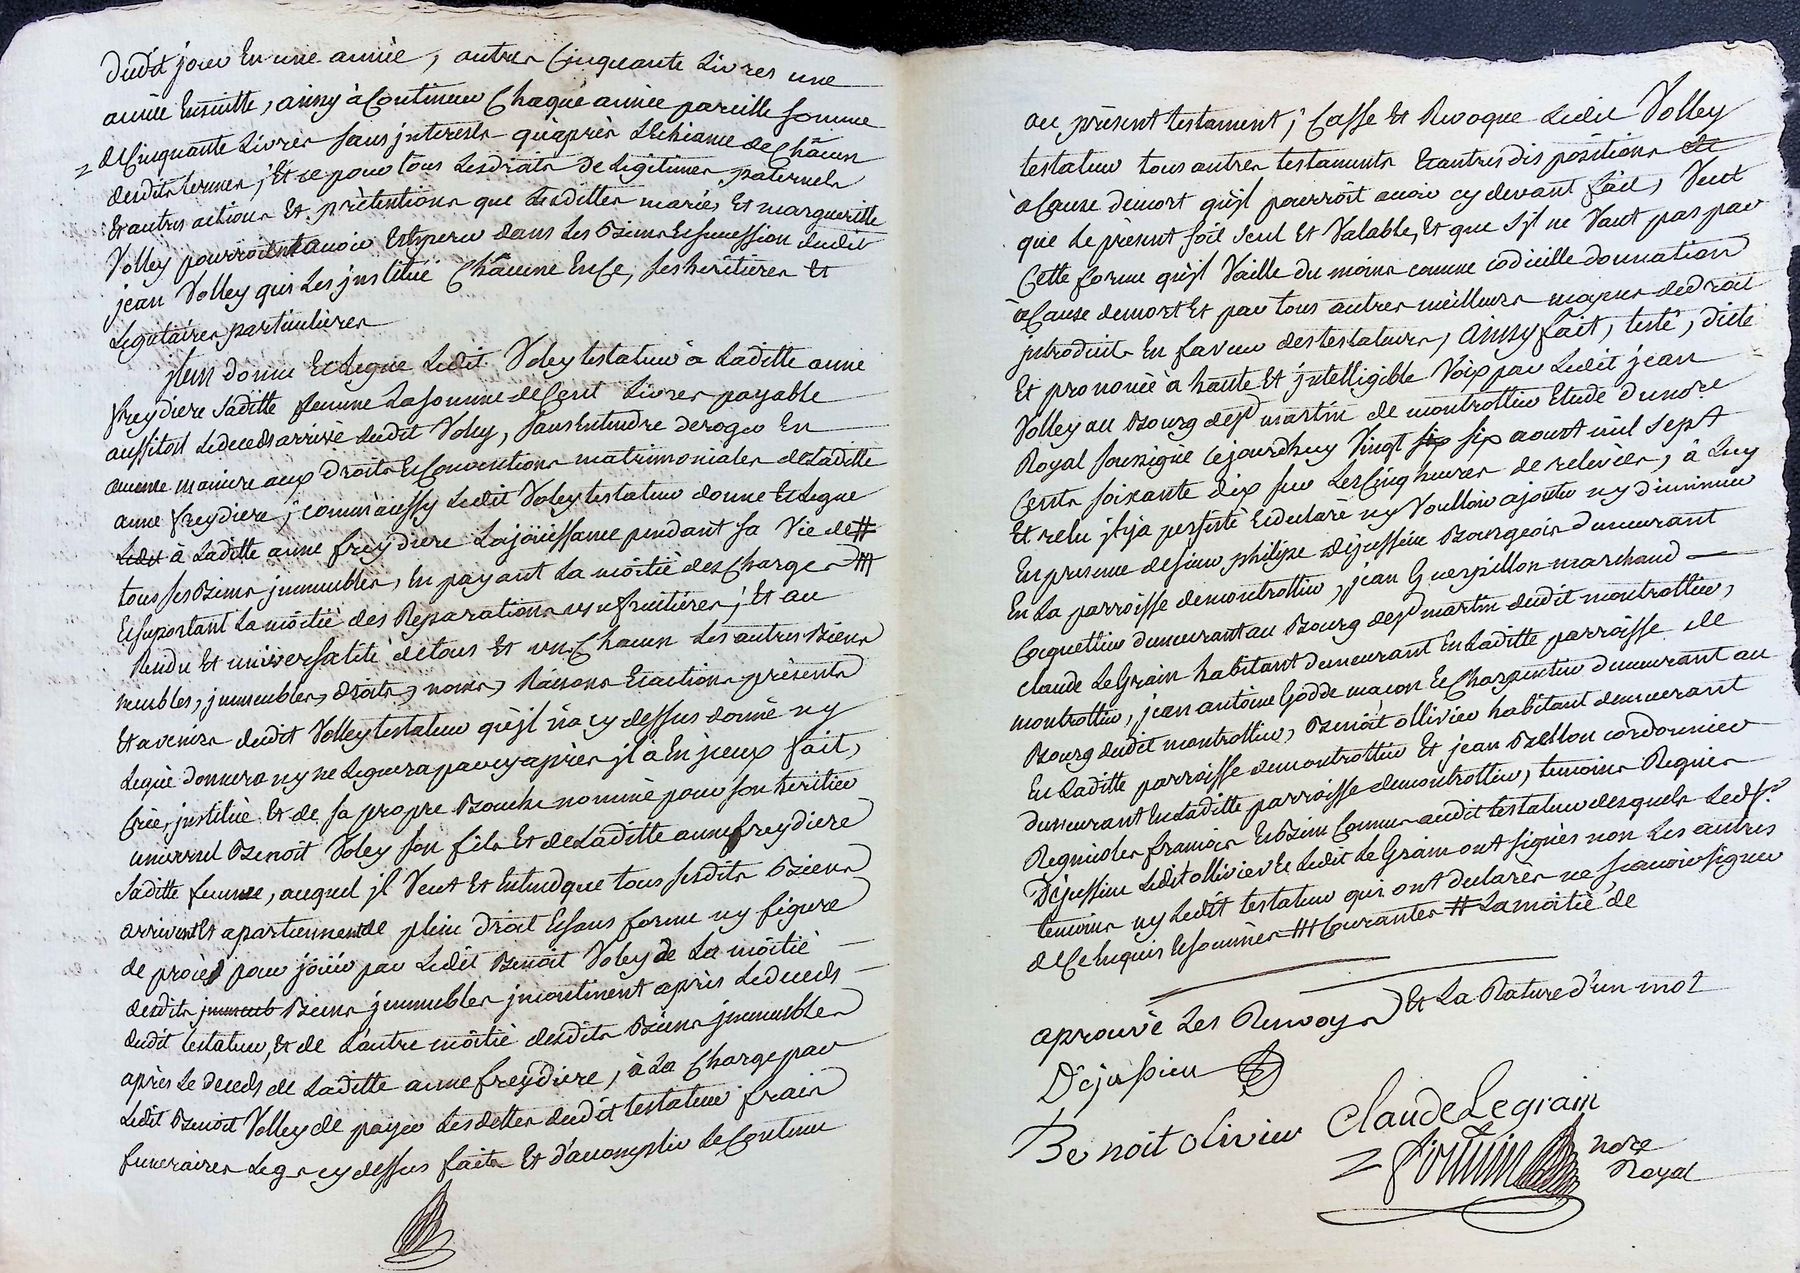 dudit jour En une année, autres Cinquante Livres une
année Ensuitte, ainsy à Continuer Chaque année pareille somme
de Cinquante Livres sans interests qu'après L'Echéance de Châcun
desdits termes; Et ce pour tous Les droits de Légitimes paternels
Et autres actions Et prétentions que Lesdittes marie, Et margueritte
Volley pourroient avoir Et Esperer dans Les Biens Et succession dudit
jean Volley qui Les jnstitue Châcune En Ce, ses heritieres Et
Legataires particulieres
jtem donne Et Legue Ledit Voley testateur à Laditte anne
freydiere saditte femme La somme de Cent Livres payable
aussitost Le deceds arrivé dudit Voley, sans Entendre deroger En
aucune maniere aux droits Et Conventions matrimoniales de Laditte
anne freydiere; comm'aussy Ledit Voley testateur donne Et Legue
Ledit à Laditte anne freydiere La joüissance pendant sa Vie de #
tous ses Biens jmmeubles, En payant La moitié des Charges ##
Et suportant La moitié des Reparations usufruitières; Et au
Rendu Et universalité de tous Et un Chacun Les autres Biens
meubles, jmmeubles, droits, noms, Raisons Et actions présents
Et avenirs dudit Volley testateur qu'jl n'a cy dessus donné ny
Legué donnera ny ne Leguera par cy après jl à En jceux fait,
Créé, jnstitué Et de sa propre Bouche nommé pour son heritier
universel Benoit Voley son fils Et de Laditte anne freydiere
saditte femme, auquel jl Veut Et Entend que tous sesdits Biens
arrivent Et apartiennent de plein droit Et sans forme ny figure
de procès pour jöüir par Ledit Benoit Voley de La môitié
desdits jmmeub Biens jmmeubles jncontinent après Le deceds
dudit testateur, Et de L'autre môitié desdits Biens jmmeubles
après Le deceds de Laditte anne freydiere, à La Charge par
Ledit Benoit Volley de payer Les dettes dudit testateur frais
funeraires Legs cy dessus faits Et d'accomplir Le Contenu
au présent testament; Casse Et Revoque Ledit Volley
testateur tous autres testaments Et autres dispositions
à Cause de mort qu'jl pourroit avoir cy devant fait, Veut
que Le présent soit seul Et Valable, Et que s'jl ne Vaut pas par
Cette forme qu'jl Vaille du moins comme codicille donnation
à Cause de mort Et par tous autres meilleurs moyens de droit
jntroduits En faveur des testateurs, Ainsy fait, testé, dicté
Et prononcé a haute Et jntelligible Voix par Ledit jean
Volley au Bourg de st martin de montrottier Etude du nore
Royal soussigné Cejourdhuy Vingt six six aoust mil sept
Cents soixante dix sur Les Cinq heures de relevées, à Luy
Et relu jl y a persisté Et declaré n'y Voulloir ajouter ny diminuer
En presence de sieur philipe Déjussieu Bourgeois demeurant
En La parroisse de montrottier, jean Guerpillon marchand
Coquetier demeurant au Bourg de st martin dudit montrottier,
claude Le Grain habitant demeurant En Laditte parroisse de
montrottier, jean antoine Godde maçon Et Charpentier demeurant au
Bourg dudit montrottier, Benoît ollivier habitant demeurant
En Laditte parroisse de montrottier Et jean Bellon cordonnier
demeurant En Laditte parroisse de montrottier, temoins Requis
Regnicoles françois Et Bien Connus audit testateur desquels Led. sr.
Déjussieu Ledit ollivier Et Ledit Le Grain ont signés non Les autres
temoins ny Ledit testateur qui ont declarés ne sçauoir signer
de Ce Enquis Et sommés ## Courantes # La moitié de
aprouvé Les Renvoys Et La Rature d'un mot
Déjussieu
Benoit olivier
Claude Legrain
nore
Royal